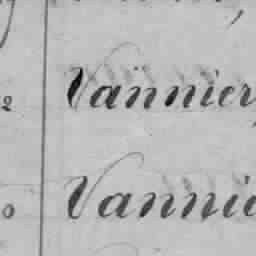 2 Vannier,
0 Vannie